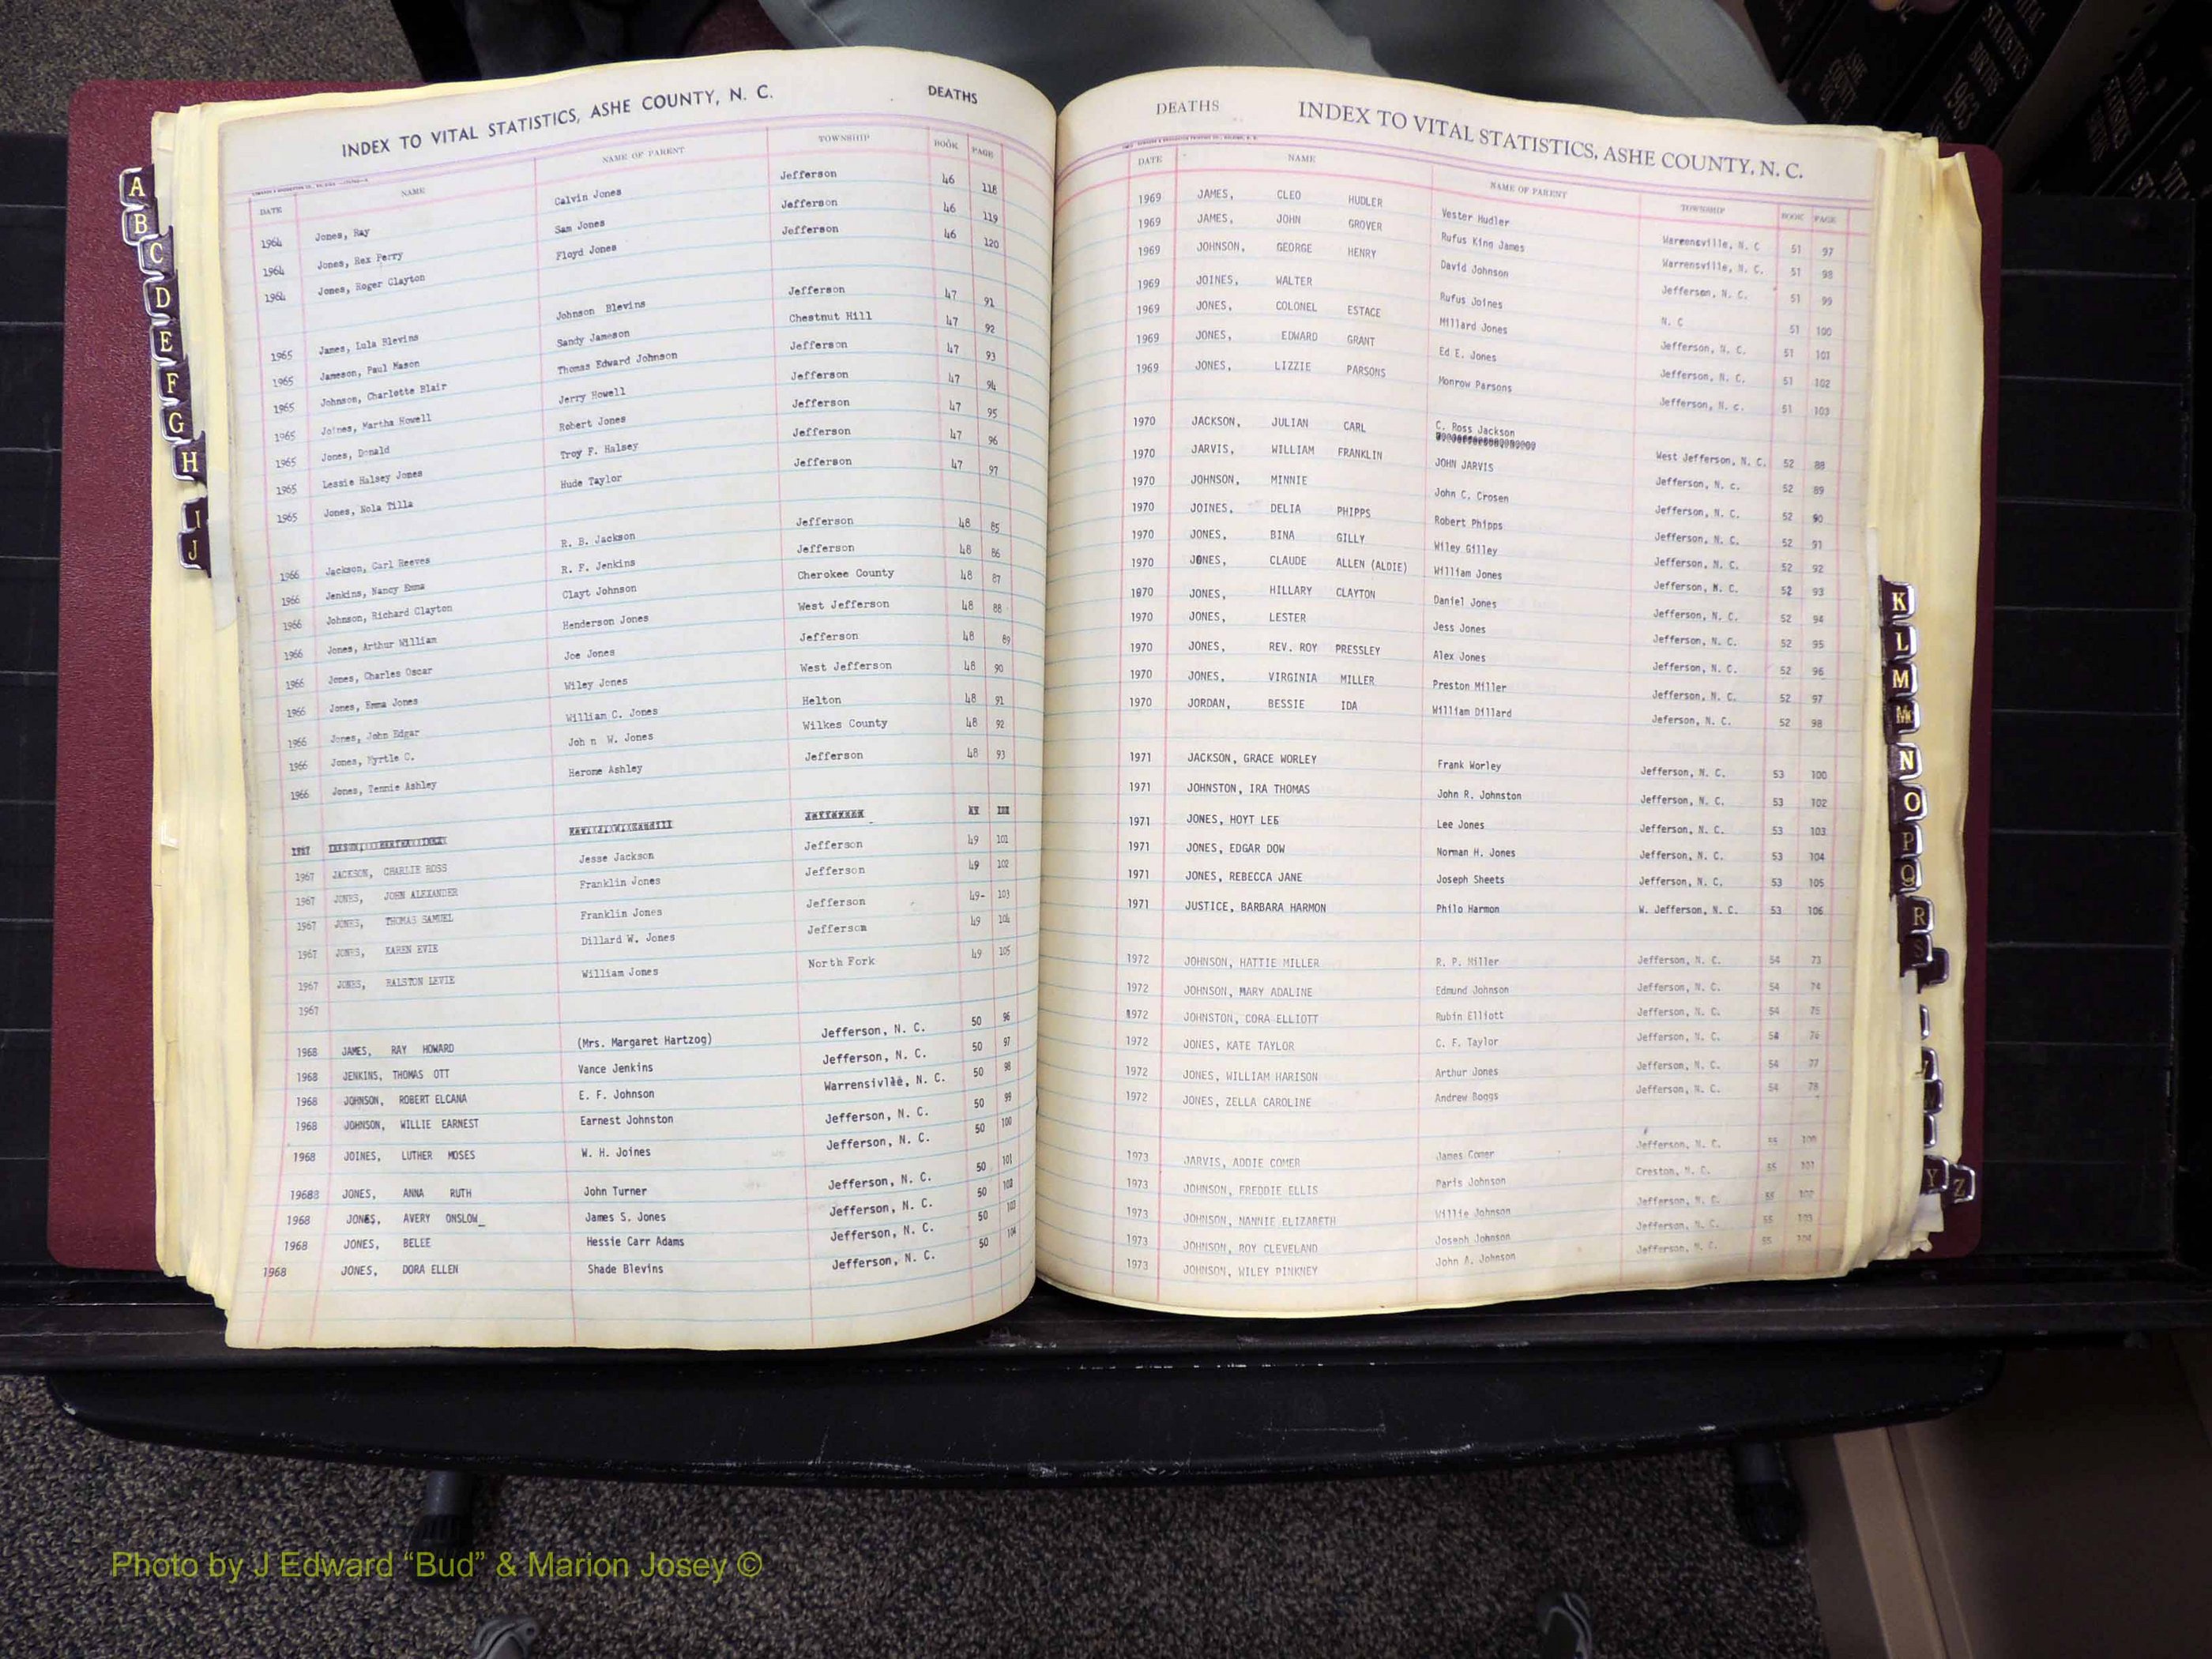 INDEX TO VITAL STATISTICS, ASHE COUNTY, N. C. DEATHS
DATE NAME NAME OF PARENT TOWNSHIP BOOK PAGE
1964 Jones, Ray Calvin Jones Jefferson 46 118
1964 Jones, Rex Perry Sam Jones Jefferson 46 119
1964 Jones, Roger Clayton Floyd Jones Jefferson 46 120
1965 James, Lula Blevins Johnson Blevins Jefferson 47 91
1965 Jameson, Paul Mason Sandy Jameson Chestnut Hill 47 92
1965 Johnson, Charlotte Blair Thomas Edward Johnson Jefferson 47 93
1965 Joines, Martha Howell Jerry Howell Jefferson 47 94
1965 Jones, Donald Robert Jones Jefferson 47 95
1965 Lessie Halsey Jones Troy F. Halsey Jefferson 47 96
1965 Jones, Nola Tilla Hude Taylor Jefferson 47 97
1966 Jackson, Carl Reeves R. B. Jackson Jefferson 48 85
1966 Jenkins, Nancy Emma R. F. Jenkins Jefferson 48 86
1966 Johnson, Richard Clayton Clayt Johnson Cherokee County 48 87
1966 Jones, Arthur William Henderson Jones West Jefferson 48 88
1966 Jones, Charles Oscar Joe Jones Jefferson 48 89
1966 Jones, Emma Jones Wiley Jones West Jefferson 48 90
1966 Jones, John Edgar William C. Jones Helton 48 91
1966 Jones, Myrtle C. Joh n W. Jones Wilkes County 48 92
1966 Jones, Tennie Ashley Herome Ashley Jefferson 48 93
1967
1967 JACKSON, CHARLIE ROSS Jesse Jackson Jefferson 49 101
1967 JONES, JOHN ALEXANDER Franklin Jones Jefferson 49 102
1967 JONES, THOMAS SAMUEL Franklin Jones Jefferson 49- 103
1967 JONES, KAREN EVIE Dillard W. Jones Jefferson 49 104
1967 JONES, RALSTON LEVIE William Jones North Fork 49 105
1967
1968 JAMES, RAY HOWARD (Mrs. Margaret Hartzog) Jefferson, N. C. 50 96
1968 JENKINS, THOMAS OTT Vance Jenkins Jefferson, N. C. 50 97
1968 JOHNSON, ROBERT ELCANA E. F. Johnson Warrensivlle, N. C. 50 98
1968 JOHNSON, WILLIE EARNEST Earnest Johnston Jefferson, N. C. 50 99
1968 JOINES, LUTHER MOSES W. H. Joines Jefferson, N. C. 50 100
19688 JONES, ANNA RUTH John Turner Jefferson, N. C. 50 101
1968 JONES, AVERY ONSLOW_ James S. Jones Jefferson, N. C. 50 102
1968 JONES, BELEE Hessie Carr Adams Jefferson, N. C. 50 103
1968 JONES, DORA ELLEN Shade Blevins Jefferson, N. C. 50 104
DEATHS INDEX TO VITAL STATISTICS, ASHE COUNTY, N. C.
DATE NAME NAME OF PARENT TOWNSHIP BOOK PAGE
1969 JAMES, CLEO HUDLER Vester Hudler Warrensville, N. C 51 97
1969 JAMES, JOHN GROVER Rufus King James Warrensville, N. C. 51 98
1969 JOHNSON, GEORGE HENRY David Johnson Jefferson, N. C. 51 99
1969 JOINES, WALTER Rufus Joines N. C 51 100
1969 JONES, COLONEL ESTACE Millard Jones Jefferson, N. C. 51 101
1969 JONES, EDWARD GRANT Ed E. Jones Jefferson, N. C. 51 102
1969 JONES, LIZZIE PARSONS Monrow Parsons Jefferson, N. c. 51 103
1970 JACKSON, JULIAN CARL C. Ross Jackson West Jefferson, N. C. 52 88
1970 JARVIS, WILLIAM FRANKLIN JOHN JARVIS Jefferson, N. c. 52 89
1970 JOHNSON, MINNIE John C. Crosen Jefferson, N. C. 52 90
1970 JOINES, DELIA PHIPPS Robert Phipps Jefferson, N. C. 52 91
1970 JONES, BINA GILLY Wiley Gilley Jefferson, N. C. 52 92
1970 JONES, CLAUDE ALLEN (ALDIE) William Jones Jefferson, N. C. 52 93
1970 JONES, HILLARY CLAYTON Daniel Jones Jefferson, N. C. 52 94
1970 JONES, LESTER Jess Jones Jefferson, N. C. 52 95
1970 JONES, REV. ROY PRESSLEY Alex Jones Jefferson, N. C. 52 96
1970 JONES, VIRGINIA MILLER Preston Miller Jefferson, N. C. 52 97
1970 JORDAN, BESSIE IDA William Dillard Jeferson, N. C. 52 98
1971 JACKSON, GRACE WORLEY Frank Worley Jefferson, N. C. 53 100
1971 JOHNSTON, IRA THOMAS John R. Johnston Jefferson, N. C. 53 102
1971 JONES, HOYT LEE Lee Jones Jefferson, N. C. 53 103
1971 JONES, EDGAR DOW Norman H. Jones Jefferson, N. C. 53 104
1971 JONES, REBECCA JANE Joseph Sheets Jefferson, N. C. 53 105
1971 JUSTICE, BARBARA HARMON Philo Harmon W. Jefferson, N. C. 53 106
1972 JOHNSON, HATTIE MILLER R. P. Miller Jefferson, N. C. 54 73
1972 JOHNSON, MARY ADALINE Edmund Johnson Jefferson, N. C. 54 74
1972 JOHNSTON, CORA ELLIOTT Rubin Elliott Jefferson, N. C. 54 75
1972 JONES, KATE TAYLOR C. F. Taylor Jefferson, N. C. 54 76
1972 JONES, WILLIAM HARISON Arthur Jones Jefferson, N. C. 54 77
1972 JONES, ZELLA CAROLINE Andrew Boggs Jefferson, N. C. 54 78
1973 JARVIS, ADDIE COMER James Comer Jefferson, N. C. 55 100
1973 JOHNSON, FREDDIE ELLIS Paris Johnson Creston, N. C. 55 101
1973 JOHNSON, NANNIE ELIZABETH Willie Johnson Jefferson, N. C. 55 102
1973 JOHNSON, ROY CLEVELAND Joseph Johnson Jefferson, N. C. 55 103
1973 JOHNSON, WILEY PINKNEY John A. Johnson Jefferson, N. C. 55 104
A
B
C
D
E
F
G
H
I
J
K
L
M
Mc
N
O
P
Q
R
S
Y
Z
VITAL STATISTICS BIRTHS 1963
ASHE COUNTY
Photo by J Edward “Bud” & Marion Josey ©